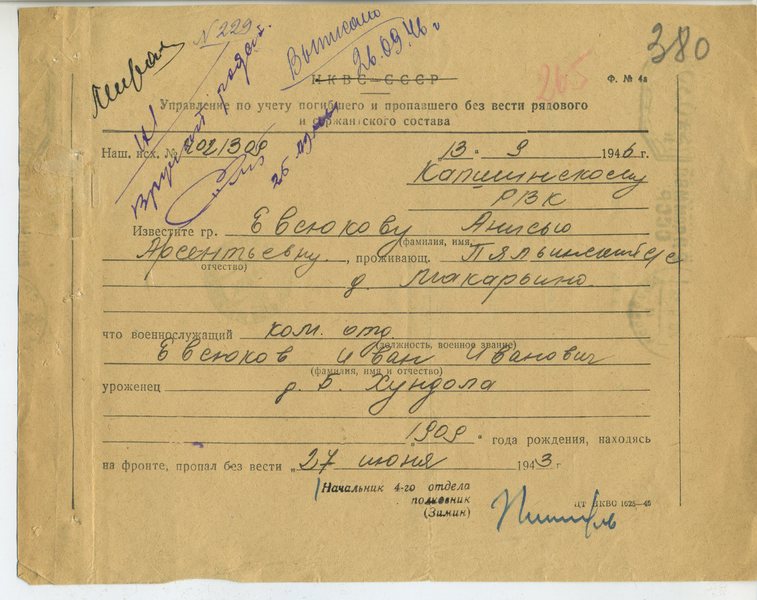 № 229
Выписано
26.09.46 г
380
НКВС-СССР
265
Ф. № 4а
Управление по учету погибшего и пропавшего без вести рядового
и сержантского состава
Наш. исх. № 7021309
13 " 9 1946 г.
РВК
Известите гр. Евсюкову Анисью
(фамилия, имя,
Арсентьевну, проживающ.
отчество)
д. Макарьино
что военнослужащий ком. отд
(должность, военное звание)
Евсюков Иван Иванович
(фамилия, имя и отчество)
уроженец д. Б. Хундола
1909 " года рождения, находясь
на фронте, пропал без вести „ 27 июня 1943 г.
Начальник 4-го отдела
полковник
(Зимин)
ЦТ НКВС 1625—46